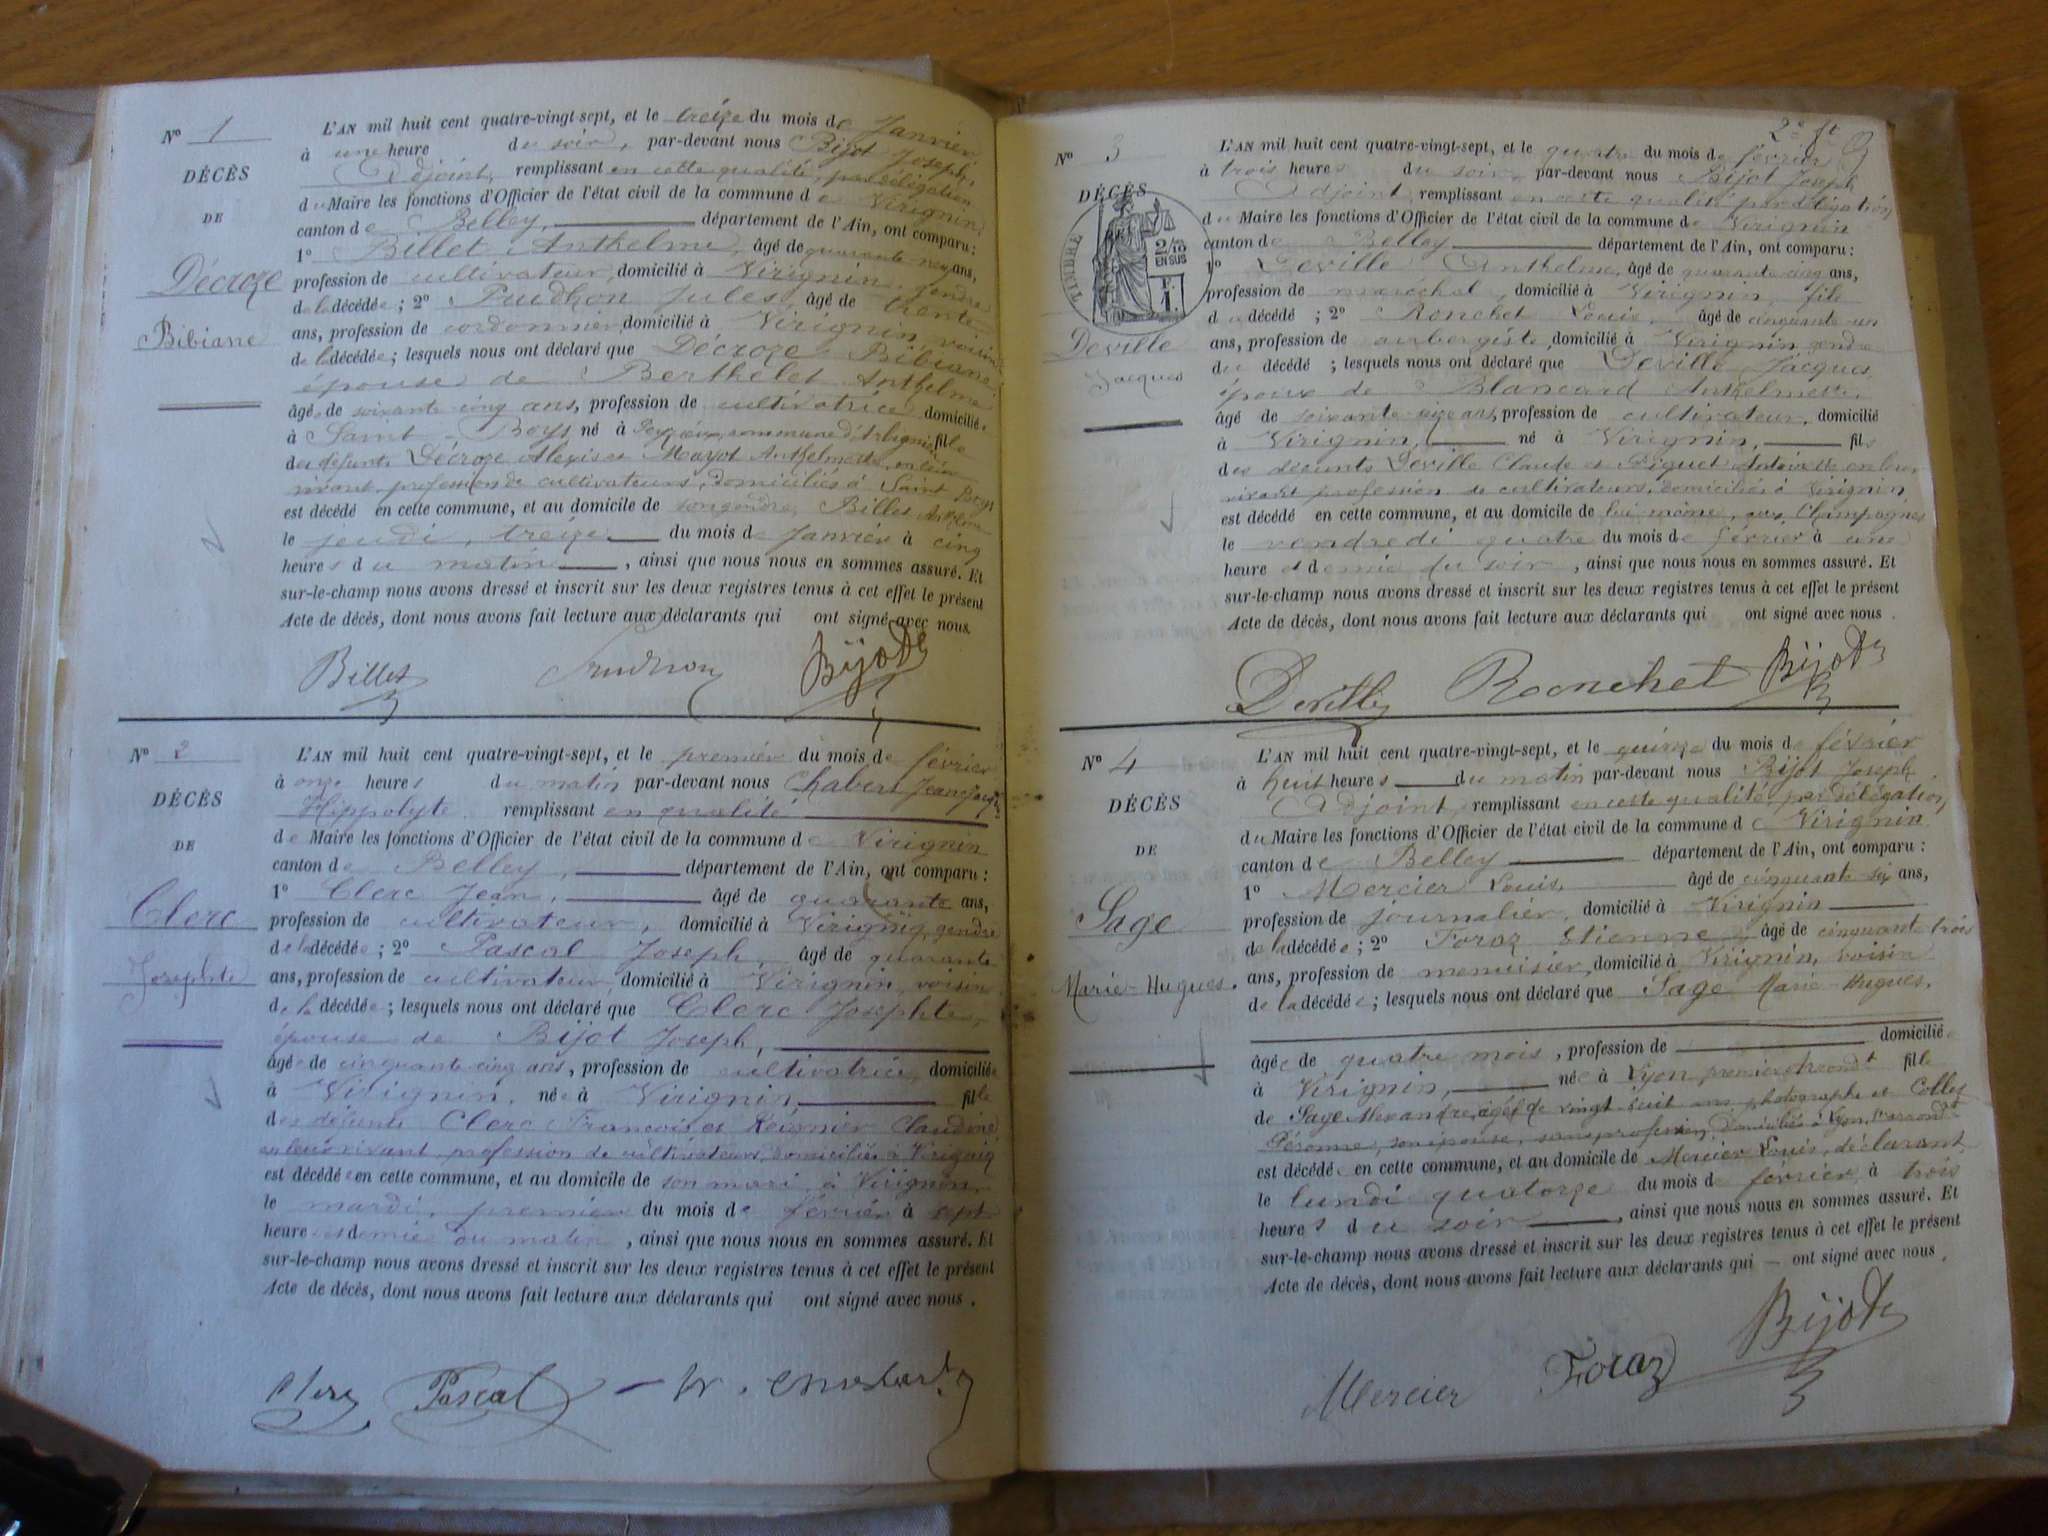 N° 1
DÉCÈS
DE
Décroze
Bibiane
L'AN mil huit cent quatre-vingt-sept, et le treize du mois de Janvier
à une heure du soir, par-devant nous Bijot Joseph,
Adjoint, remplissant en cette qualité, par délégation
du Maire les fonctions d'Officier de l'état civil de la commune de Virignin
canton de Belley, département de l'Ain, ont comparu :
1° Billet Anthelme, âgé de quarante-neuf ans,
profession de cultivateur, domicilié à Virignin, gendre
de la décédée ; 2° Prudhon Jules, âgé de trente
ans, profession de cordonnier, domicilié à Virignin, voisin
de la décédée ; lesquels nous ont déclaré que Décroze Bibiane
épouse de Berthelet Anthelme
âgée de soixante cinq ans, profession de cultivatrice domiciliée
à Saint-Boys, né à Peyzieux, commune d'Arbignieu fille
des défunts Décroze Alexis et Mayot Anthelmette, en leur
vivant profession de cultivateurs, domiciliés à Saint Boys
est décédé en cette commune, et au domicile de son gendre, Billet Anthelme
le jeudi, treize du mois de Janvier à cinq
heures du matin, ainsi que nous nous en sommes assuré. Et
sur-le-champ nous avons dressé et inscrit sur les deux registres tenus à cet effet le présent
Acte de décès, dont nous avons fait lecture aux déclarants qui ont signé avec nous.
Billet Prudhon Bijot
N° 2
DÉCÈS
DE
Clerc
Josephte
L'AN mil huit cent quatre-vingt-sept, et le premier du mois de février
à onze heures du matin par-devant nous Chabert Jean Jacq
Hippolyte remplissant en qualité
de Maire les fonctions d'Officier de l'état civil de la commune de Virignin
canton de Belley, département de l'Ain, ont comparu :
1° Clerc Jean, âgé de quarante ans,
profession de cultivateur, domicilié à Virignin, gendre
de la décédée ; 2° Pascal Joseph, âgé de quarante
ans, profession de cultivateur, domicilié à Virignin, voisin
de la décédée ; lesquels nous ont déclaré que Clerc Josephte,
épouse de Bijot Joseph,
âgée de cinquante cinq ans, profession de cultivatrice, domiciliée
à Virignin, née à Virignin, fille
des défunts Clerc François et Reignier Claudine
en leur vivant profession de cultivateurs, domiciliés à Virignin
est décédée en cette commune, et au domicile de son mari à Virignin,
le mardi, premier du mois de février à sept
heures et demie du matin, ainsi que nous nous en sommes assuré. Et
sur-le-champ nous avons dressé et inscrit sur les deux registres tenus à cet effet le présent
Acte de décès, dont nous avons fait lecture aux déclarants qui ont signé avec nous.
Clerc Pascal
2e ft
N° 3
DÉCÈS
TIMBRE
2/10
EN SUS
Deville
Jacques
L'AN mil huit cent quatre-vingt-sept, et le quatre du mois de février
à trois heures du soir, par-devant nous Bijot Joseph
Adjoint, remplissant en cette qualité par délégation
du Maire les fonctions d'Officier de l'état civil de la commune de Virignin
canton de Belley département de l'Ain, ont comparu :
1° Deville Anthelme, âgé de quarante cinq ans,
profession de maréchal, domicilié à Virignin, fils
du décédé ; 2° Ronchet Louis, âgé de cinquante-un
ans, profession de aubergiste, domicilié à Virignin gendre
du décédé ; lesquels nous ont déclaré que Deville Jacques
époux de Blancard Anthelmette,
âgé de soixante-seize ans, profession de cultivateur, domicilié
à Virignin, né à Virignin, fils
des décunts Deville Claude et Piguet Antoinette en leur
vivant profession de cultivateurs, domiciliés à Virignin,
est décédé en cette commune, et au domicile de lui même, aux Champagnes
le vendredi quatre du mois de février à une
heure et demie du soir, ainsi que nous nous en sommes assuré. Et
sur-le-champ nous avons dressé et inscrit sur les deux registres tenus à cet effet le présent
Acte de décès, dont nous avons fait lecture aux déclarants qui ont signé avec nous.
Deville Ronchet Bijot
N° 4
DÉCÈS
DE
Sage
Marie-Hugues.
L'AN mil huit cent quatre-vingt-sept, et le quinze du mois de février
à huit heures du matin par-devant nous Bijot Joseph
Adjoint, remplissant en cette qualité, par délégation
du Maire les fonctions d'Officier de l'état civil de la commune de Virignin
canton de Belley département de l'Ain, ont comparu :
1° Mercier Louis, âgé de cinquante six ans,
profession de journalier, domicilié à Virignin
de la décédée ; 2° Foraz Etienne âgé de cinquante trois
ans, profession de menuisier, domicilié à Virignin, voisin
de la décédée ; lesquels nous ont déclaré que Sage Marie-Hugues,
âgée de quatre mois, profession de domiciliée
à Virignin, née à Lyon premier arrondt fille
de Sage Alexandre, âgé de vingt huit ans photographe et Collet
Péronne, son épouse, sans profession, domiciliés à Lyon, 1er arrondt
est décédée en cette commune, et au domicile de Mercier Louis, déclarant
le lundi quatorze du mois de février à trois
heures du soir, ainsi que nous nous en sommes assuré. Et
sur-le-champ nous avons dressé et inscrit sur les deux registres tenus à cet effet le présent
Acte de décès, dont nous avons fait lecture aux déclarants qui ont signé avec nous.
Mercier Foraz Bijot